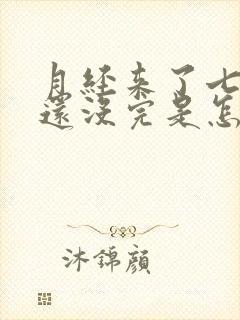 月經來了七
還沒完是怎
沐錦顏